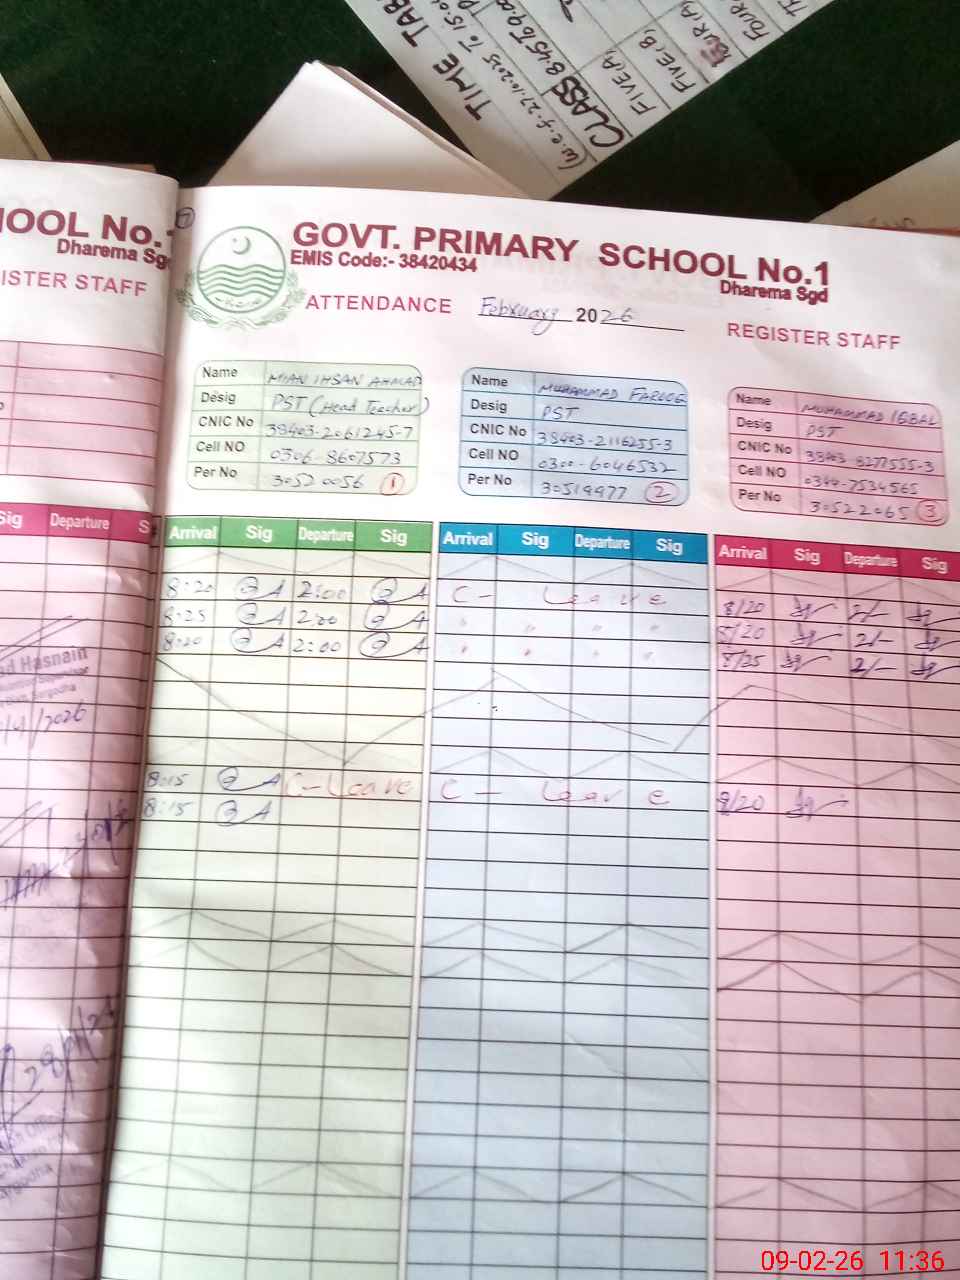 TIME TAB
(w.e.f. 27-10-2025 To 15-
CLASS 8:45 To 9:00
FIVE(A)
FIVE(B)
FOUR(A)
FOUR
HOOL No.1
Dharema Sgd
ISTER STAFF
GOVT. PRIMARY SCHOOL No.1
EMIS Code:- 38420434
Dharema Sgd
ATTENDANCE February 2026
REGISTER STAFF
Name MIAN IHSAN AHMAD
Desig PST (Head Teacher)
CNIC No 38403-2061245-7
Cell NO 0306-8607573
Per No 30520056 1
Name MUHAMMAD FAROOQ
Desig PST
CNIC No 38403-2116255-3
Cell NO 0300-6046532
Per No 30519977 2
Name MUHAMMAD IQBAL
Desig PST
CNIC No 38403-8277555-3
Cell NO 0344-7534565
Per No 30522065 3
Sig Departure S
Arrival Sig Departure Sig Arrival Sig Departure Sig Arrival Sig Departure Sig
8:20 2:00 C- Leave 8/20 2/-
8:25 2:00 " " " " 8/20 2/-
8:20 2:00 " " " " 8/25 2/-
8:15 C-Leave C- Leave 8/20
8:15
ad Hasnain
/2026
09-02-26 11:36